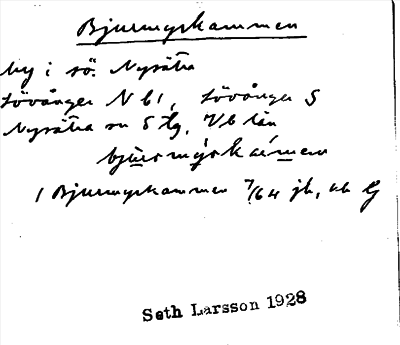 Bjurmyrkammen
by i sö. Nysätra
Lövånger N b1, Lövånger S
Nysätra sn S tg, Vb län
bjürsmýrkamen
1 Bjurmyrkammen 7/64 jb, ub lj
Seth Larsson 1928